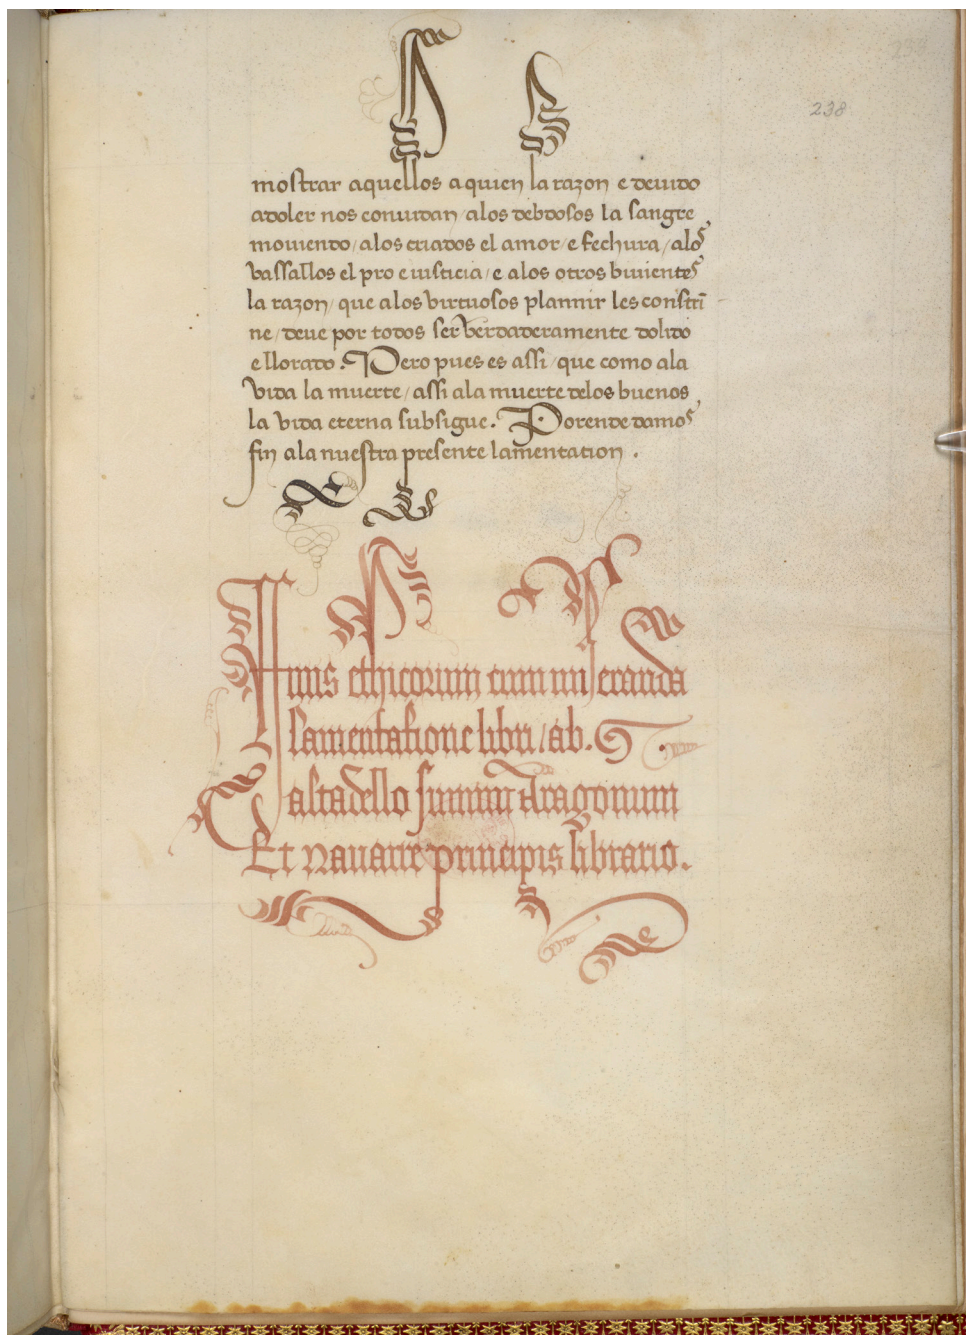 238
mostrar aquellos a quien la razon e deuido
adoler nos conuidan / alos debdosos la sangre
mouiendo / alos criados el amor / e fechura / alos
vassallos el pro e iusticia / e alos otros biuientes
la razon / que alos virtuosos plannir les constri᷈
ne / deue por todos ser verdaderamente dolido
e llorado. Pero pues es assi / que como ala
vida la muerte / assi ala muerte delos buenos
la vida eterna subsigue. Porende damos
fin ala nuestra presente lamentacion.
Finis ethicorum cum miseranda
lamentatione libri / ab. G.
Castadello summi Aragonum
Et Nauarre principis librario.